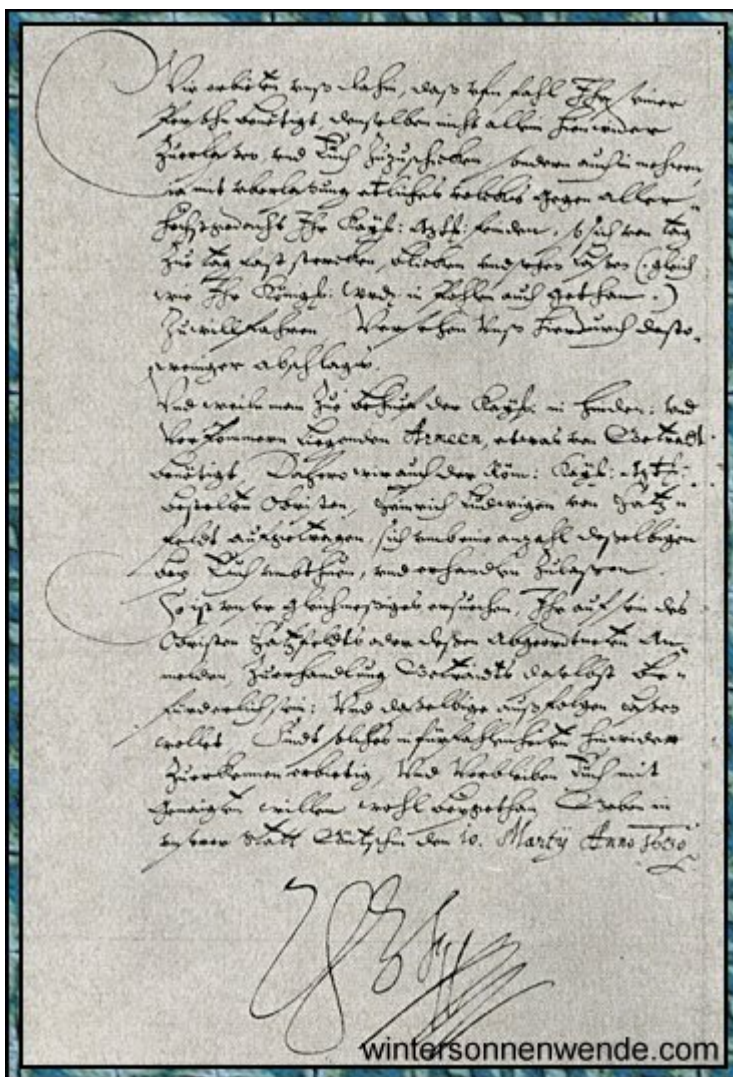 Wir erbieten unß dahin, daß uffn fahl Ihr seiner
Persohn benötigt denselben nicht allein hinwider
Zuerlaßen und Euch Zuzuschicken, sondern auch in mehren
ja mit uberlaßung etliches volckhs gegen aller-
höchstgedacht Ihr Kayß: Mtt: feinden, so sich von tag
Zue tag fast stercken, blicken und sehen laßen (gleich
wie Ihr Königl: Wrd: in Pohlen auch gethan.)
Zuwillfahren Versehen Unß hierdurch desto-
weniger abschlags.
Und weiln man Zue behuef der Kayß: in und
Vor Pommern liegenden Armeen, etwas von Getraidt
benötigt, Dahero wir auch der Röm: Kayß: Mtt:
bestelten Obristen, Heinrich Ludwigen von Hatz-
feldt aufgetragen, sich umb eine anzahl deßelbigen
bey Euch umbthuen, und erhandeln Zulaßen
So ist unser gleichmeßiges ersuchen, Ihr auf sein des
Obristen Hatzfeldts oder deßen Abgeordneten An-
melden, Zuerhandlung Getraidts daselbst be-
fürderlich sein: Und daßelbige auß folgen laßen
wollet, Sindt solches in fürfahlenheiten hinwider
Zuerkennen erbietig, Und Verbleiben Euch mit
Genaigten willen wohl beygethan Geben in
unserer Statt Gitschin den 10. Martÿ Anno 1630
wintersonnenwende.com